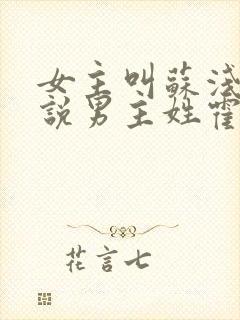 女主叫蘇淺
說男主姓霍
花言七